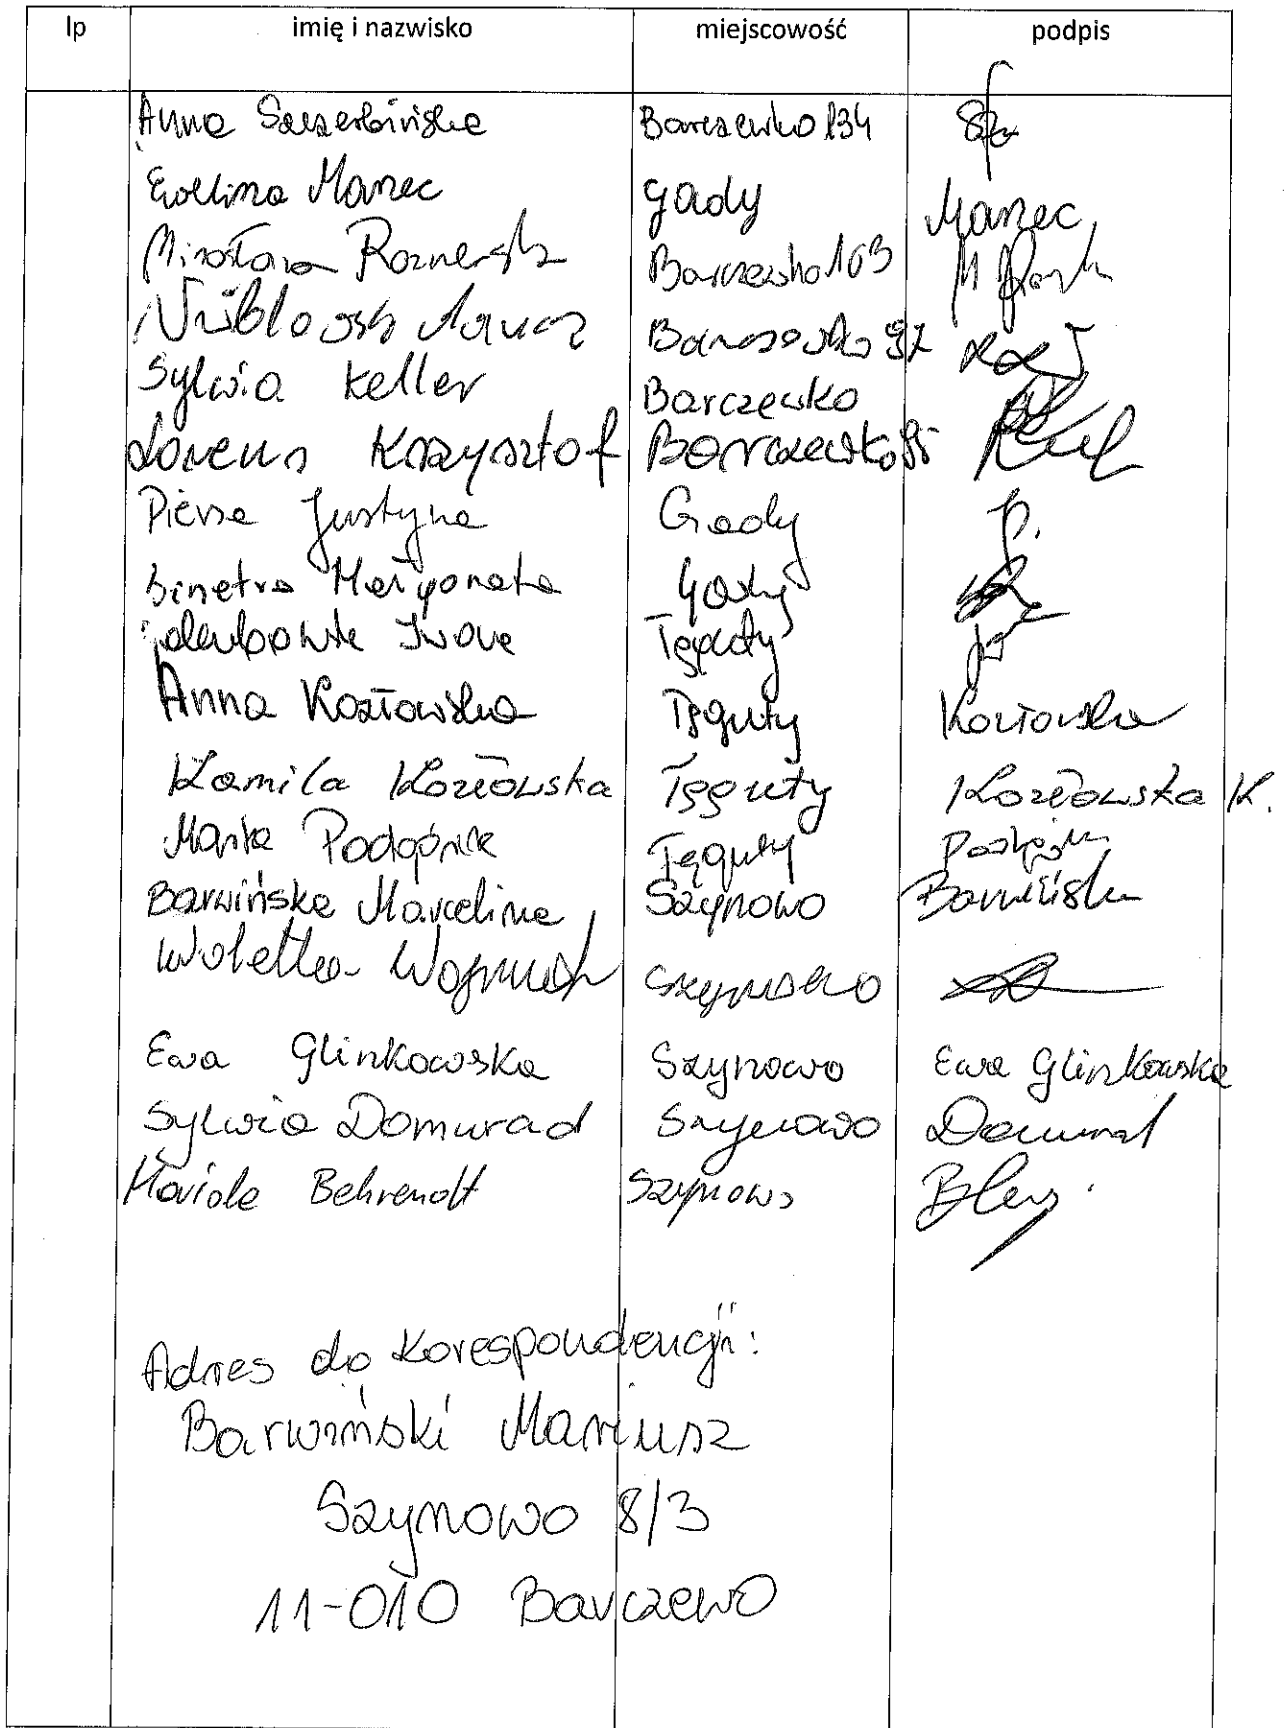 lp imię i nazwisko miejscowość podpis
Anna Szczerbińska Barczewko 134
Ewelina Manec Gady Manec
Mirosława Barczewko 163
Barczewko 97
Sylwia Keller Barczewko
Lorenz Krzysztof Barczewko
Piersa Justyna Gady
Małgorzata Gady
Iwona Tęguty
Anna Kozłowska Tęguty Kozłowska
Kamila Kozłowska Tęguty Kozłowska K.
Marta Podgórna Tęguty
Barwińska Marcelina Szynowo Barwińska
Wioletta Szynowo
Ewa Glinkowska Szynowo Ewa Glinkowska
Sylwia Domurad Szynowo Domurad
Mariola Behrendt Szynowo
Adres do korespondencji:
Barwiński Mariusz
Szynowo 8/3
11-010 Barczewo